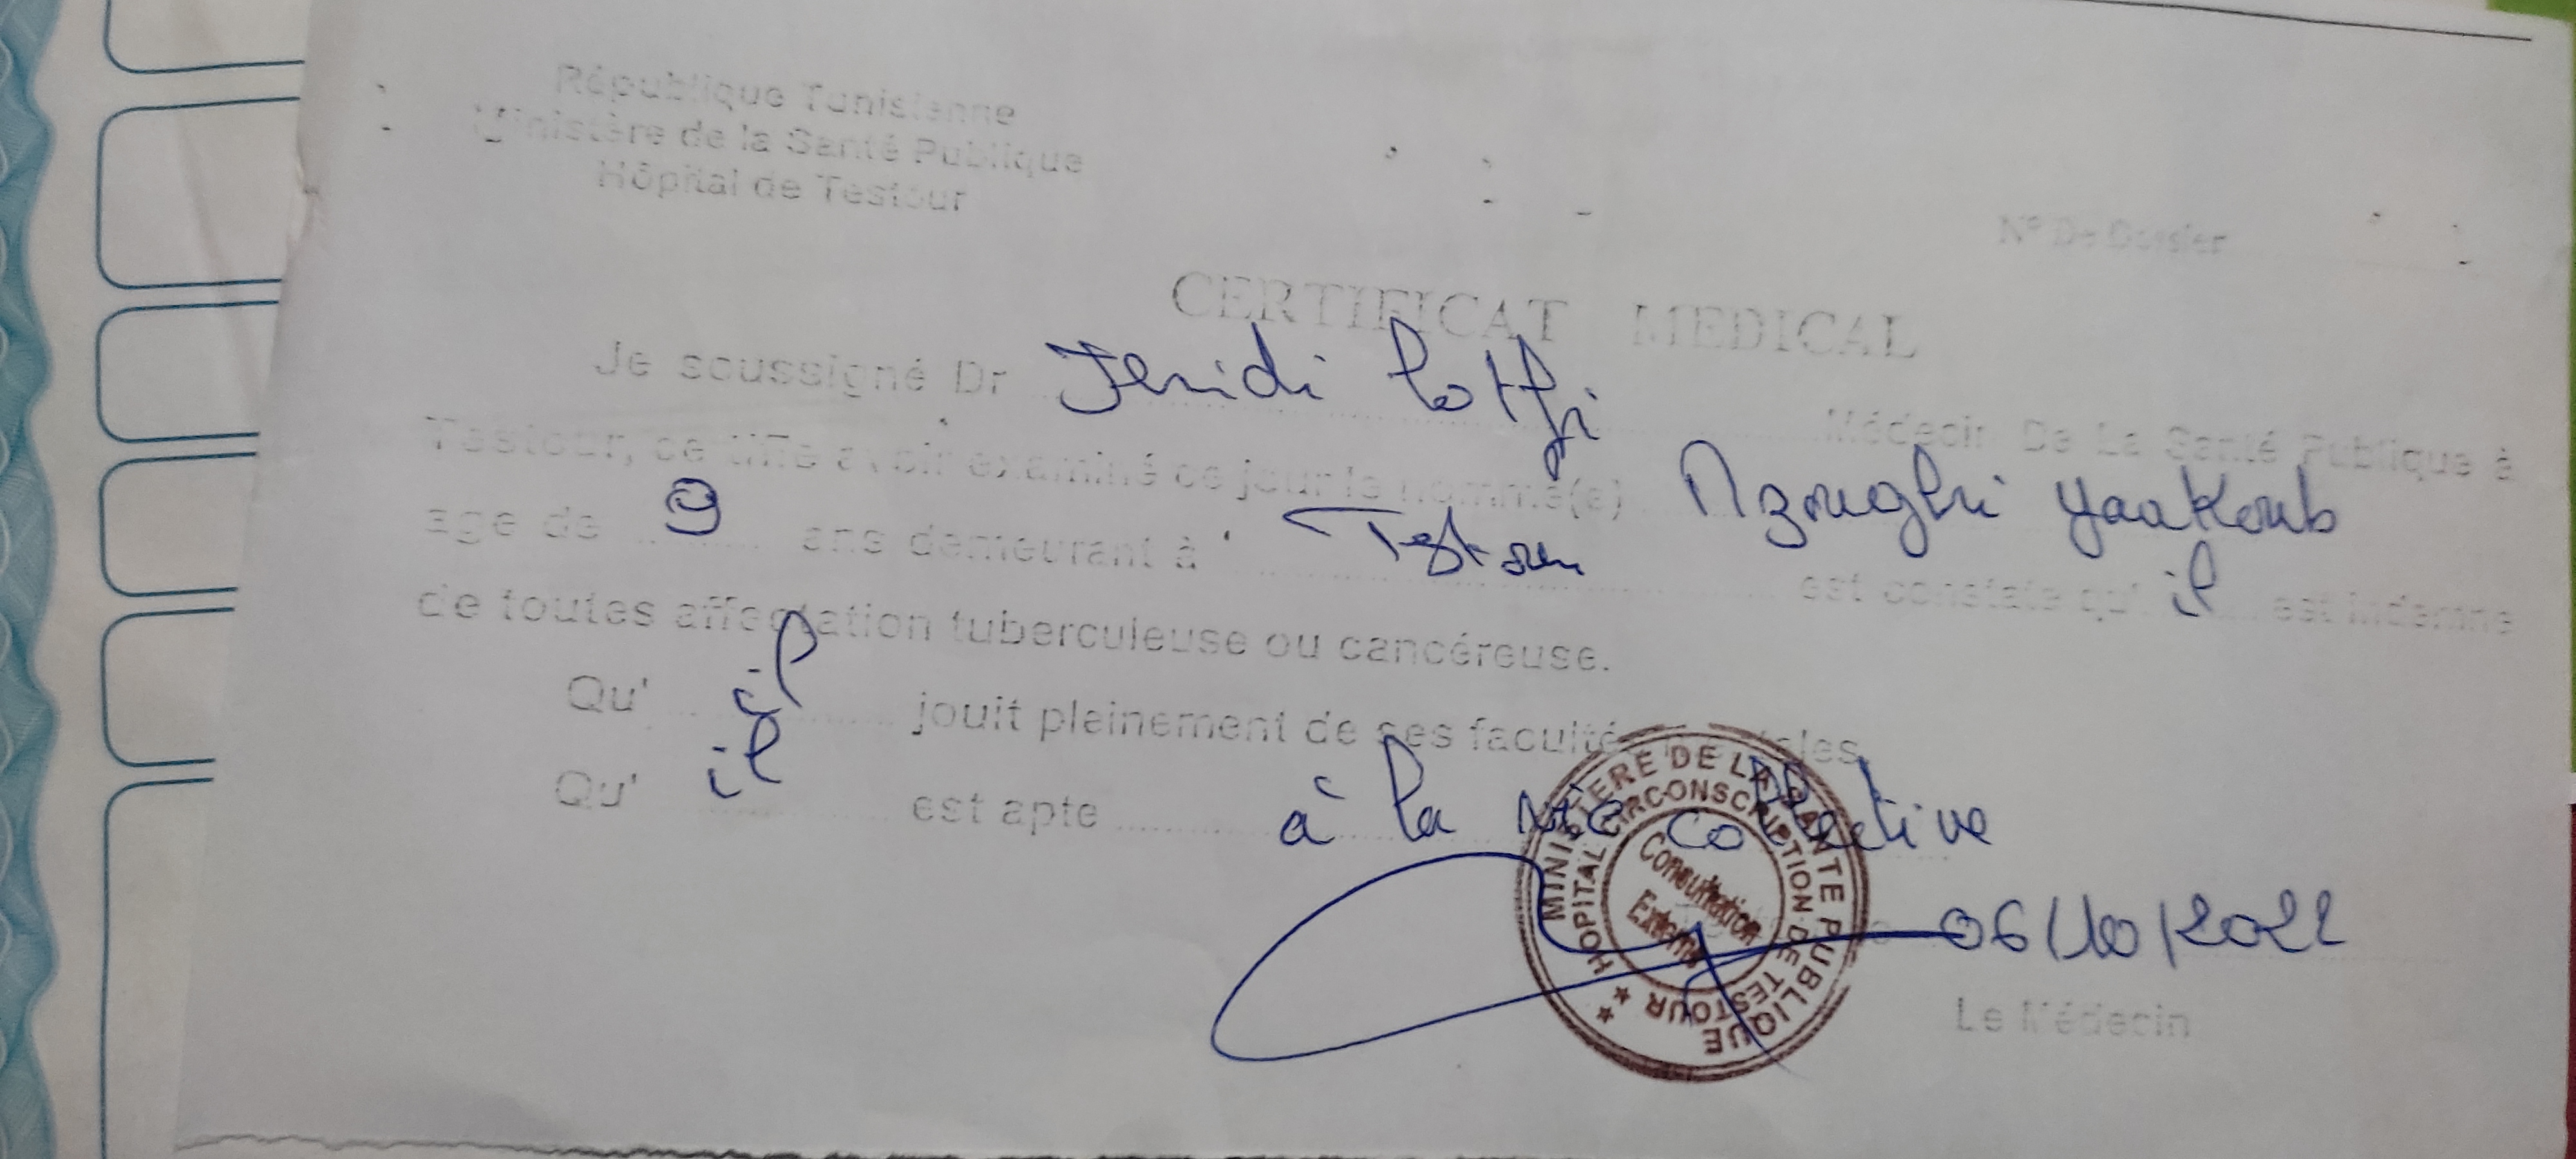 République Tunisienne
Ministère de la Santé Publique
Hôpital de Testour
N° De Dossier
CERTIFICAT MEDICAL
Je soussigné Dr Jenidi Lotfi Médecin De La Santé Publique à
Testour, certifie avoir examiné ce jour le nommé(e) Mzoughi Yaakoub
age de 9 ans demeurant à Testour est constate qu' il est indemne
de toutes affectation tuberculeuse ou cancéreuse.
Qu' il jouit pleinement de ses facultés mentales
Qu' il est apte à la vie collective
MINISTERE DE LA SANTE PUBLIQUE
HOPITAL CIRCONSCRIPTION DE TESTOUR
Consultation
Externe
06/10/2022
Le Médecin